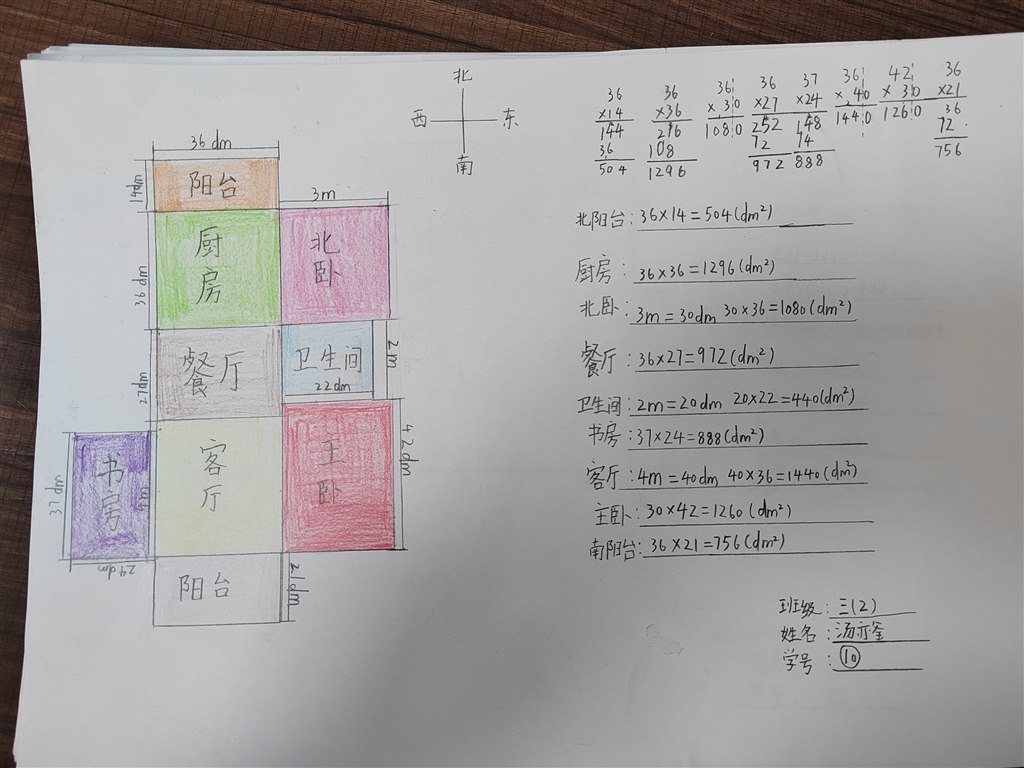 北
西 东
南
36 dm
14dm
阳台
3m
36 dm
厨房
北卧
27dm
餐厅
卫生间
22 dm
2m
37 dm
书房
24dm
4m
客厅
主卧
42dm
阳台
21dm
36
×14
144
36
504
36
×36
216
108
1296
36
×30
1080
36
×27
252
72
972
37
×24
148
74
888
36
×40
1440
42
×30
1260
36
×21
36
72
756
北阳台:36×14=504(dm²)
厨房:36×36=1296(dm²)
北卧:3m=30dm 30×36=1080(dm²)
餐厅:36×27=972(dm²)
卫生间:2m=20dm 20×22=440(dm²)
书房:37×24=888(dm²)
客厅:4m=40dm 40×36=1440(dm²)
主卧:30×42=1260(dm²)
南阳台:36×21=756(dm²)
班级:三(2)
姓名:汤亦筌
学号:⑩